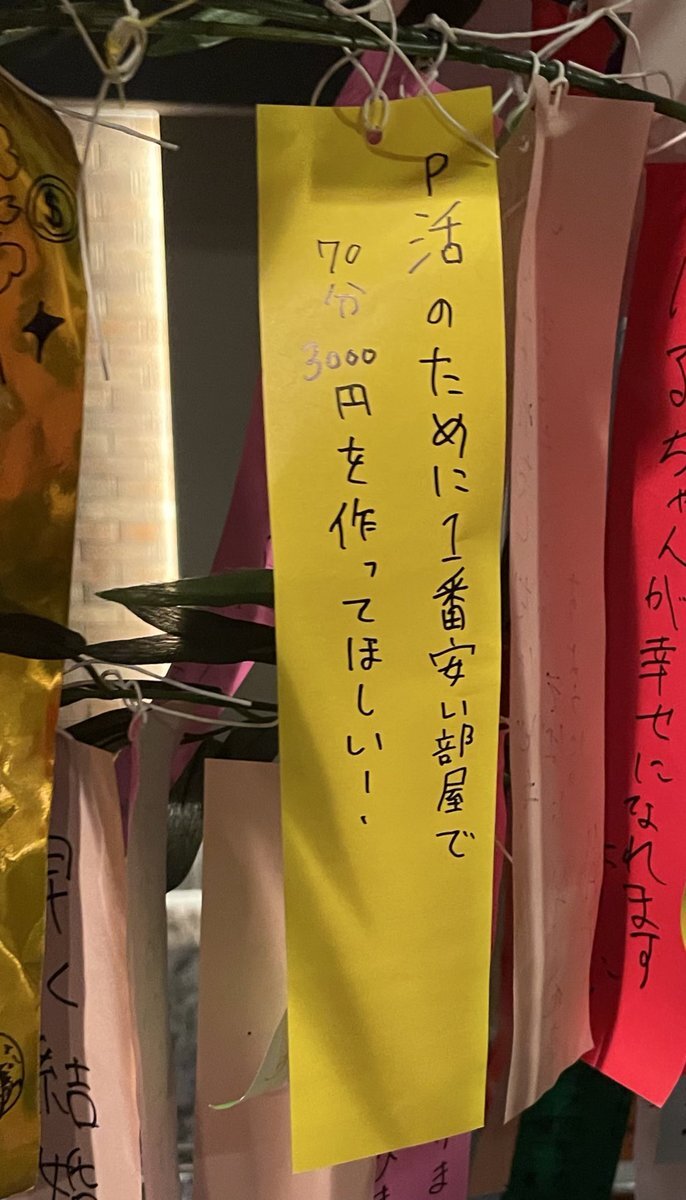 P活のために1番安い部屋で
70分3000円を作ってほしいー.
ちゃんが幸せになれます
早く結婚